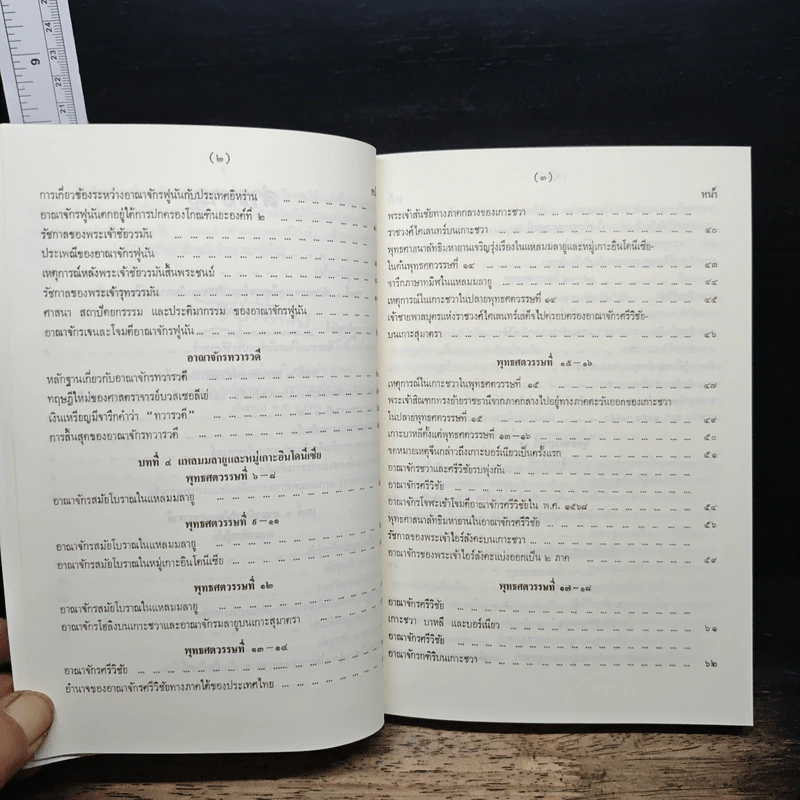 (๒)
การเกี่ยวข้องระหว่างอาณาจักรฟูนันกับประเทศอิหร่าน ... ... ... ...
อาณาจักรฟูนันตกอยู่ใต้การปกครองโกณฑินยะองค์ที่ ๒ ... ... ... ...
รัชกาลของพระเจ้าชัยวรมัน ... ... ... ... ... ...
ประเพณีของอาณาจักรฟูนัน ... ... ... ... ... ...
เหตุการณ์หลังพระเจ้าชัยวรมันสิ้นพระชนม์ ... ... ... ... ...
รัชกาลของพระเจ้ารุทรวรมัน ... ... ... ... ... ...
ศาสนา สถาปัตยกรรม และประติมากรรม ของอาณาจักรฟูนัน ... ... ...
อาณาจักรเจนละโจมตีอาณาจักรฟูนัน ... ... ... ... ...
อาณาจักรทวารวดี
หลักฐานเกี่ยวกับอาณาจักรทวารวดี ... ... ... ... ...
ทฤษฎีใหม่ของศาสตราจารย์บวสเซอลีเย่ ... ... ... ... ...
เงินเหรียญมีจารึกคำว่า “ทวารวดี” ... ... ... ... ...
การสิ้นสุดของอาณาจักรทวารวดี ... ... ... ... ...
บทที่ ๔ แหลมมลายูและหมู่เกาะอินโดนีเซีย
พุทธศตวรรษที่ ๖–๘
อาณาจักรสมัยโบราณในแหลมมลายู ... ... ... ... ...
พุทธศตวรรษที่ ๙–๑๑
อาณาจักรสมัยโบราณในแหลมมลายู ... ... ... ... ...
อาณาจักรสมัยโบราณในหมู่เกาะอินโดนีเซีย ... ... ... ...
พุทธศตวรรษที่ ๑๒
อาณาจักรสมัยโบราณในแหลมมลายู ... ... ... ... ...
อาณาจักรโฮลิงบนเกาะชวาและอาณาจักรมลายูบนเกาะสุมาตรา ... ... ...
พุทธศตวรรษที่ ๑๓–๑๔
อาณาจักรศรีวิชัย ... ... ... ... ... ... ...
อำนาจของอาณาจักรศรีวิชัยทางภาคใต้ของประเทศไทย ... ... ... ...
(๓)
หน้า
พระเจ้าสันชัยทางภาคกลางของเกาะชวา ... ... ... ... ...
ราชวงศ์ไศเลนทร์บนเกาะชวา ... ... ... ... ... ... ๔๐
พุทธศาสนาลัทธิมหายานเจริญรุ่งเรืองในแหลมมลายูและหมู่เกาะอินโดนีเซีย-
ในต้นพุทธศตวรรษที่ ๑๔ ... ... ... ... ... ๔๓
จารึกภาษาทมิฬในแหลมมลายู ... ... ... ... ...
เหตุการณ์ในเกาะชวาในปลายพุทธศตวรรษที่ ๑๔ ... ... ... ... ๔๕
เจ้าชายพาลบุตรแห่งราชวงศ์ไศเลนทร์เสด็จไปครอบครองอาณาจักรศรีวิชัย-
บนเกาะสุมาตรา ... ... ... ... ... ... ๔๖
พุทธศตวรรษที่ ๑๕–๑๖
เหตุการณ์ในเกาะชวาในพุทธศตวรรษที่ ๑๕ ... ... ... ... ๔๗
พระเจ้าสิณฑกทรงย้ายราชธานีจากภาคกลางไปอยู่ทางภาคตะวันออกของเกาะชวา
ในปลายพุทธศตวรรษที่ ๑๕ ... ... ... ... ... ๔๙
เกาะบาหลีตั้งแต่พุทธศตวรรษที่ ๑๓–๑๖ ... ... ... ... ๕๐
จดหมายเหตุจีนกล่าวถึงเกาะบอร์เนียวเป็นครั้งแรก ... ... ... ๕๑
อาณาจักรชวาและศรีวิชัยรบพุ่งกัน ... ... ... ... ...
อาณาจักรศรีวิชัย ... ... ... ... ... ... ...
อาณาจักรโจฬะเข้าโจมตีอาณาจักรศรีวิชัยใน พ.ศ. ๑๕๖๘ ... ... ... ๕๔
พุทธศาสนาลัทธิมหายานในอาณาจักรศรีวิชัย ... ... ... ... ๕๖
รัชกาลของพระเจ้าไอร์ลังคะบนเกาะชวา ... ... ... ... ...
อาณาจักรของพระเจ้าไอร์ลังคะแบ่งออกเป็น ๒ ภาค ... ... ... ๕๙
พุทธศตวรรษที่ ๑๗–๑๘
อาณาจักรศรีวิชัย ... ... ... ... ... ... ...
เกาะชวา บาหลี และบอร์เนียว ... ... ... ... ... ๖๑
อาณาจักรศรีวิชัย ... ... ... ... ... ... ...
อาณาจักรกฑิริบนเกาะชวา ... ... ... ... ... ... ๖๒